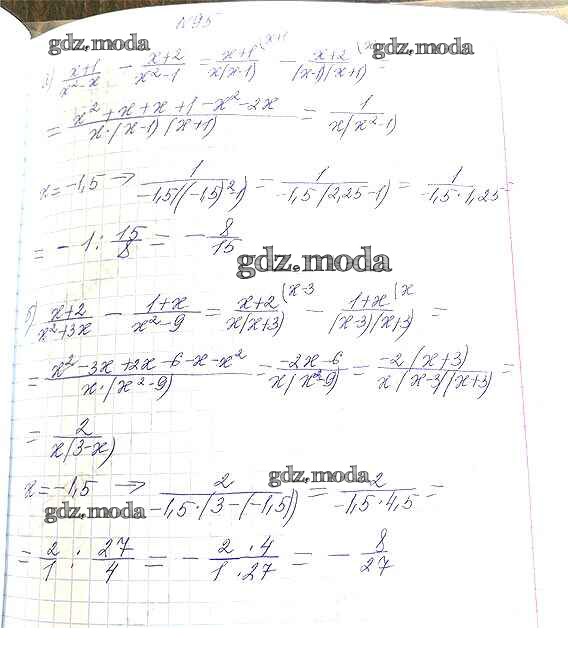 N95
gdz.moda gdz.moda
а) (x+1)/(x²-x) - (x+2)/(x²-1) = (x+1)/(x(x-1)) (x+1 - (x+2)/((x-1)(x+1)) (x =
= (x²+x+x+1-x²-2x)/(x·(x-1)(x+1)) = 1/(x(x²-1)
x=-1,5 → 1/(-1,5((-1,5)²-1) = 1/(-1,5(2,25-1) = 1/(-1,5·1,25 =
= -1 : 15/8 = - 8/15
gdz.moda
б) (x+2)/(x²+3x) - (1+x)/(x²-9) = (x+2)/(x(x+3)) (x-3 - (1+x)/((x-3)(x+3)) (x =
= (x²-3x+2x-6-x-x²)/(x·(x²-9)) = (-2x-6)/(x(x²-9)) = (-2(x+3))/(x(x-3)(x+3)) =
= 2/(x(3-x))
gdz.moda
x=-1,5 → 2/(-1,5·(3-(-1,5)) = 2/(-1,5·4,5 =
gdz.moda
= 2/1 : 27/4 = - (2·4)/(1·27) = - 8/27